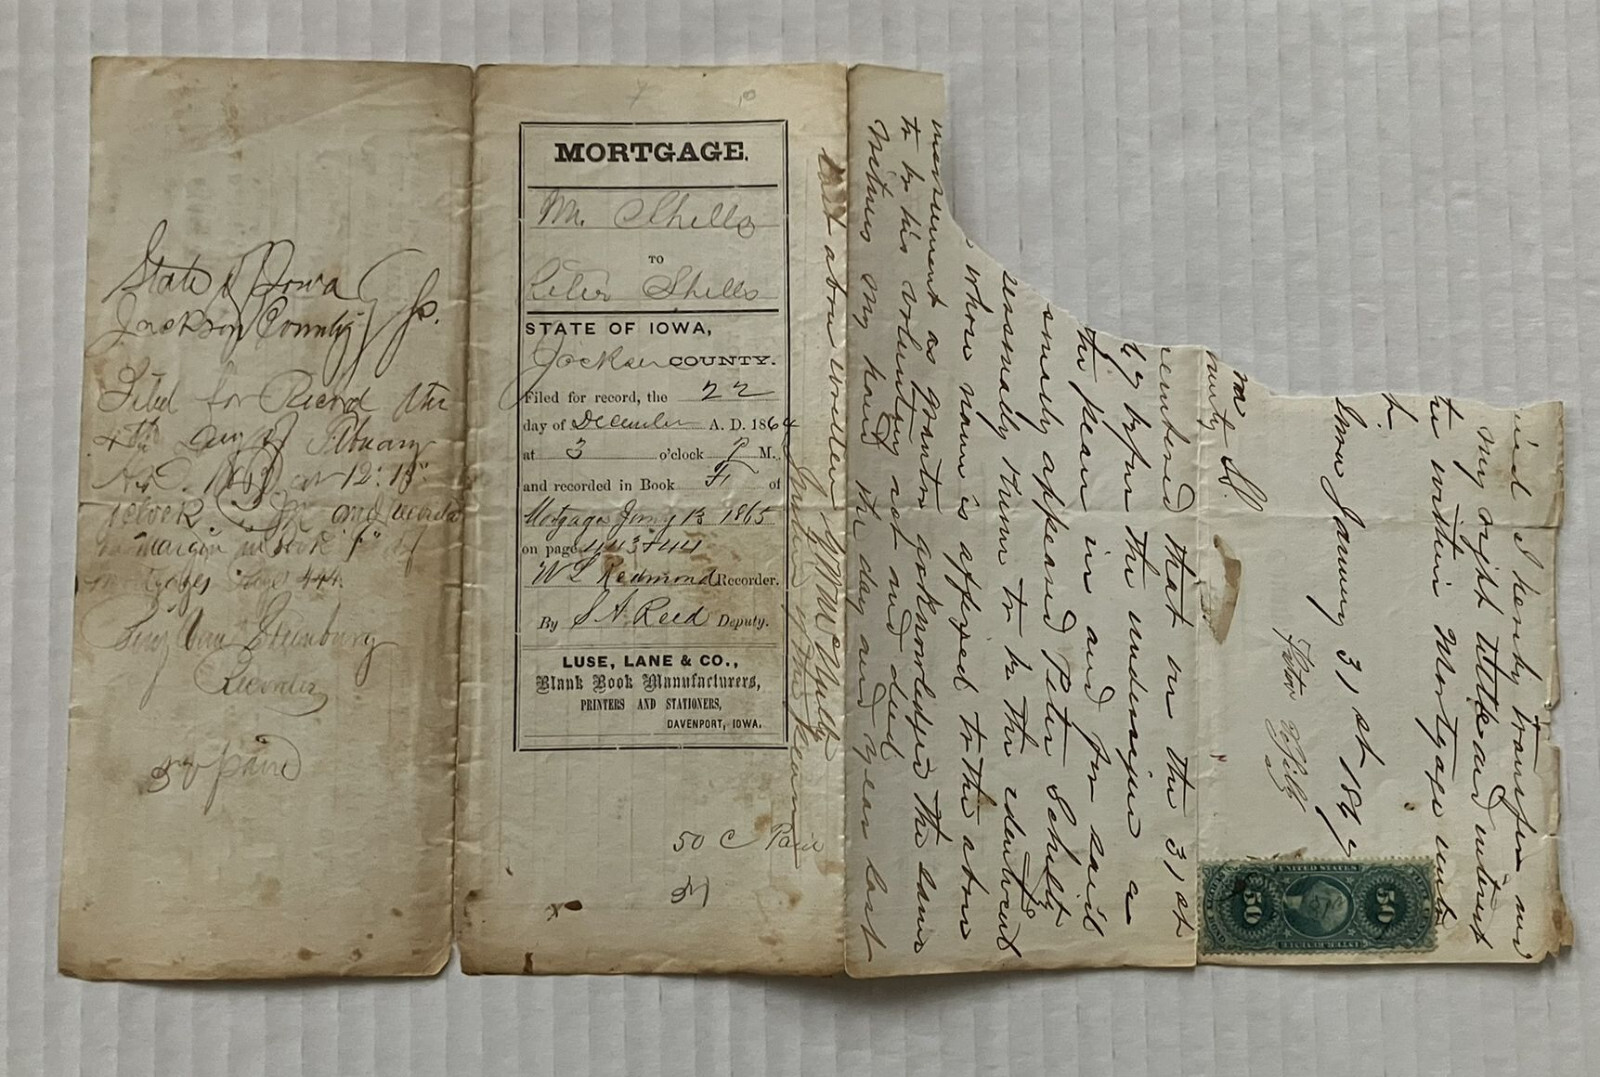 State of Iowa
Jackson County } Ss.
Filed for Record the
4th day of February
A.D. 1867 at 12: 15"
oclock P.M and recorded
on margin in book "F" of
mortgages Page 444.
Benj Van Steinburg
Recorder
paid
MORTGAGE.
Wm. Shells
TO
Peter Shells
STATE OF IOWA,
Jackson COUNTY.
Filed for record, the 22
day of December A. D. 1864
at 3 o'clock P M.,
and recorded in Book F of
Mortgages Jany 13 1865
on page 443 & 444
W L Redmond Recorder.
By S. A. Reed Deputy.
LUSE, LANE & CO.,
Blank Book Manufacturers,
PRINTERS AND STATIONERS,
DAVENPORT, IOWA.
50 C Paid
I hereby transfer
my right tittle and interest
within Mortgage
Iowa January 31 st 186
Peter
that on the 31 st
before the undersigned a
the peace in and for said
appeared Peter Schilts
personally known to be the identical
whose name is affixed to the above
as grantor acknowledged the same
to be his voluntary act and deed
Witness my hand the day and year last
last above written
Justice of the peace
UNITED STATES
50
50
INTER. REVENUE